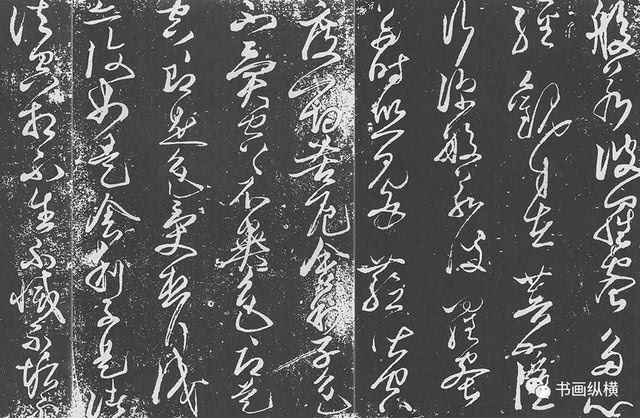 般若波羅蜜多心
經 觀自在菩薩
行深般若波羅蜜
多時照見五蘊皆空
度一切苦厄舍利子色
不異空〻不異色〻即是
空〻即是色受想行識
亦復如是舍利子是諸
法空相不生不滅不垢不
书画纵横